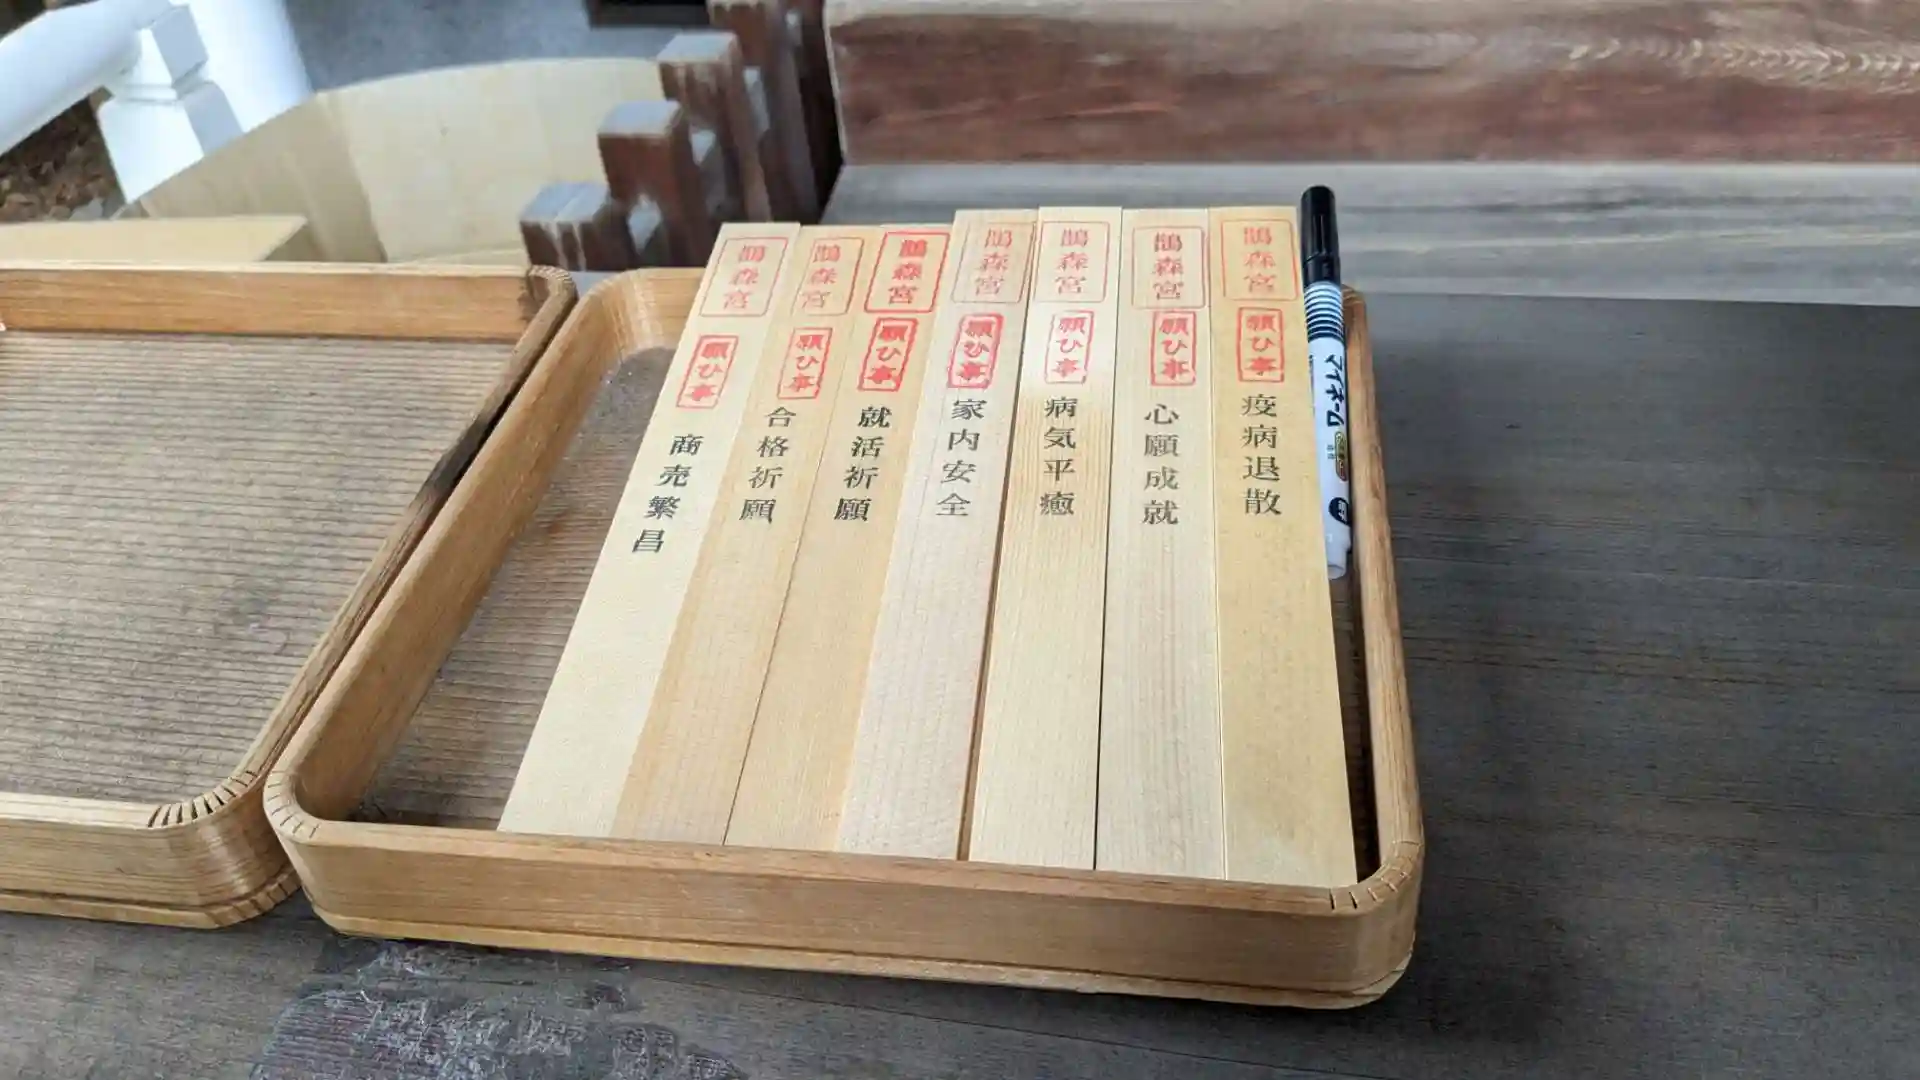 鵲森宮
願ひ事
商売繁昌
鵲森宮
願ひ事
合格祈願
鵲森宮
願ひ事
就活祈願
鵲森宮
願ひ事
家内安全
鵲森宮
願ひ事
病気平癒
鵲森宮
願ひ事
心願成就
鵲森宮
願ひ事
疫病退散
マイネーム